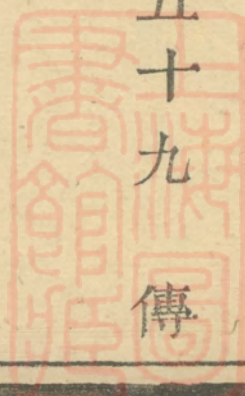 五十九 傳
上海圖
書館藏